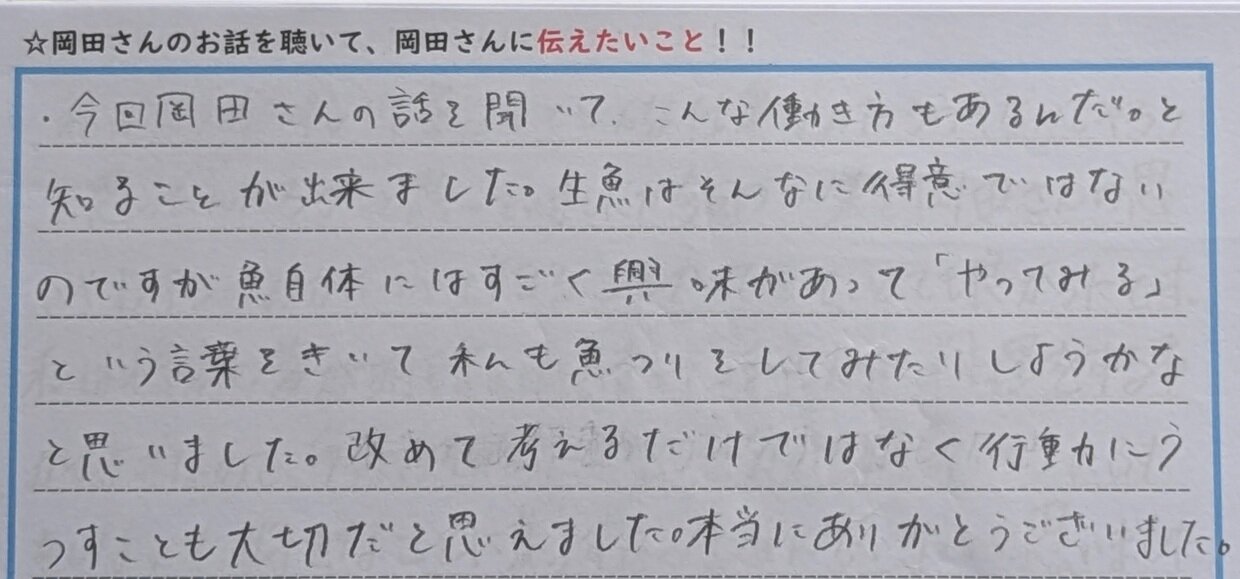 ☆岡田さんのお話を聴いて、岡田さんに伝えたいこと！！
・今回岡田さんの話を聞いて、こんな働き方もあるんだ。と
知ることが出来ました。生魚はそんなに得意ではない
のですが魚自体にはすごく興味があって「やってみる」
という言葉をきいて私も魚つりをしてみたりしようかな
と思いました。改めて考えるだけではなく行動にう
つすことも大切だと思えました。本当にありがとうございました。